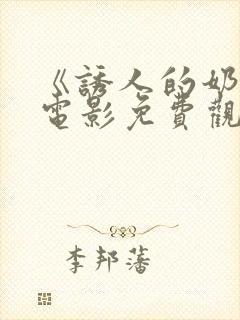 《誘人的奶
電影免費觀
李邦藩